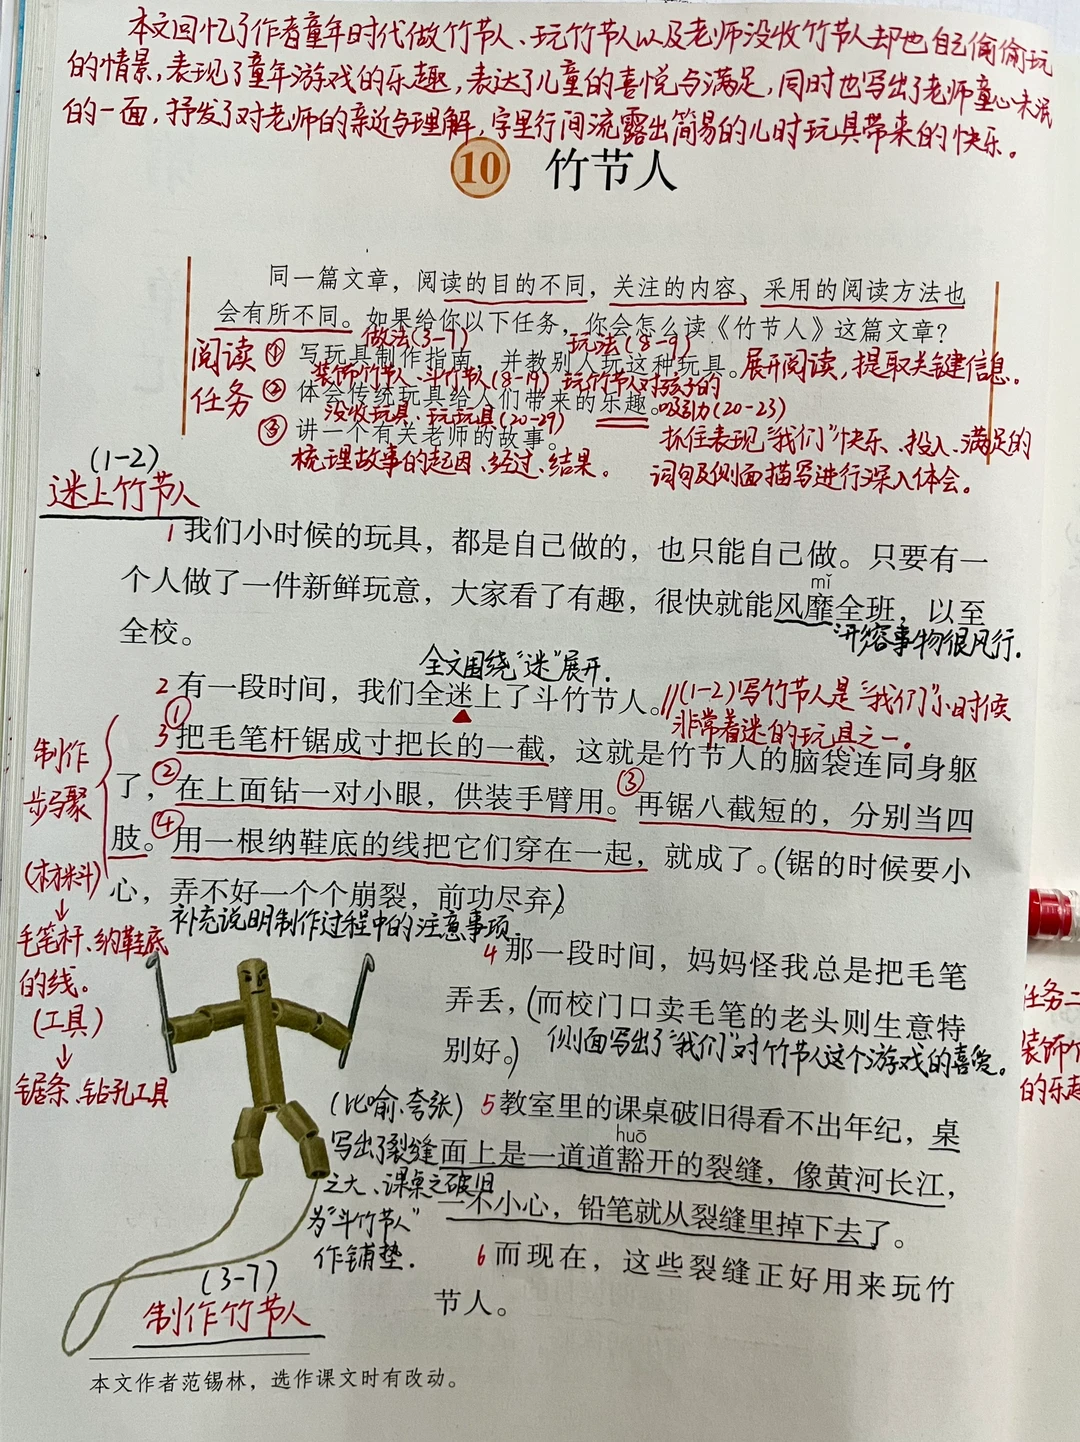 本文回忆了作者童年时代做竹节人、玩竹节人以及老师没收竹节人却也自己偷偷玩
的情景,表现了童年游戏的乐趣,表达了儿童的喜悦与满足,同时也写出了老师童心未泯
的一面,抒发了对老师的亲近与理解,字里行间流露出简易的儿时玩具带来的快乐。
10 竹节人
同一篇文章，阅读的目的不同，关注的内容、采用的阅读方法也
会有所不同。如果给你以下任务，你会怎么读《竹节人》这篇文章？
做法(3-7) 玩法(8-9)
阅读 ① 写玩具制作指南，并教别人玩这种玩具。展开阅读,提取关键信息。
装饰竹节人、斗竹节人(8-19) 玩竹节人对孩子的
任务 ② 体会传统玩具给人们带来的乐趣。吸引力(20-23)
没收玩具、玩玩具(20-29)
③ 讲一个有关老师的故事。 抓住表现“我们”快乐、投入、满足的
梳理故事的起因、经过、结果。 词句及侧面描写进行深入体会。
(1-2)
迷上竹节人
1 我们小时候的玩具，都是自己做的，也只能自己做。只要有一
个人做了一件新鲜玩意，大家看了有趣，很快就能风靡全班，以至
mǐ
全校。 形容事物很风行.
全文围绕“迷”展开.
2 有一段时间，我们全迷上了斗竹节人。//(1-2)写竹节人是“我们”小时候
非常着迷的玩具之一。
①
3 把毛笔杆锯成寸把长的一截，这就是竹节人的脑袋连同身躯
制作
步骤
了，②在上面钻一对小眼，供装手臂用。③再锯八截短的，分别当四
肢。④用一根纳鞋底的线把它们穿在一起，就成了。(锯的时候要小
心，弄不好一个个崩裂，前功尽弃)。
补充说明制作过程中的注意事项.
(材料)
↓
毛笔杆、纳鞋底
的线。
(工具)
↓
锯条、钻孔工具
4 那一段时间，妈妈怪我总是把毛笔
弄丢，(而校门口卖毛笔的老头则生意特
别好。) 侧面写出了“我们”对竹节人这个游戏的喜爱。
任务二
装饰
的乐趣
(比喻、夸张) 5 教室里的课桌破旧得看不出年纪，桌
huō
写出了裂缝 面上是一道道豁开的裂缝，像黄河长江，
之大、课桌之破旧
一不小心，铅笔就从裂缝里掉下去了。
为“斗竹节人”
作铺垫.
6 而现在，这些裂缝正好用来玩竹
节人。
(3-7)
制作竹节人
本文作者范锡林，选作课文时有改动。